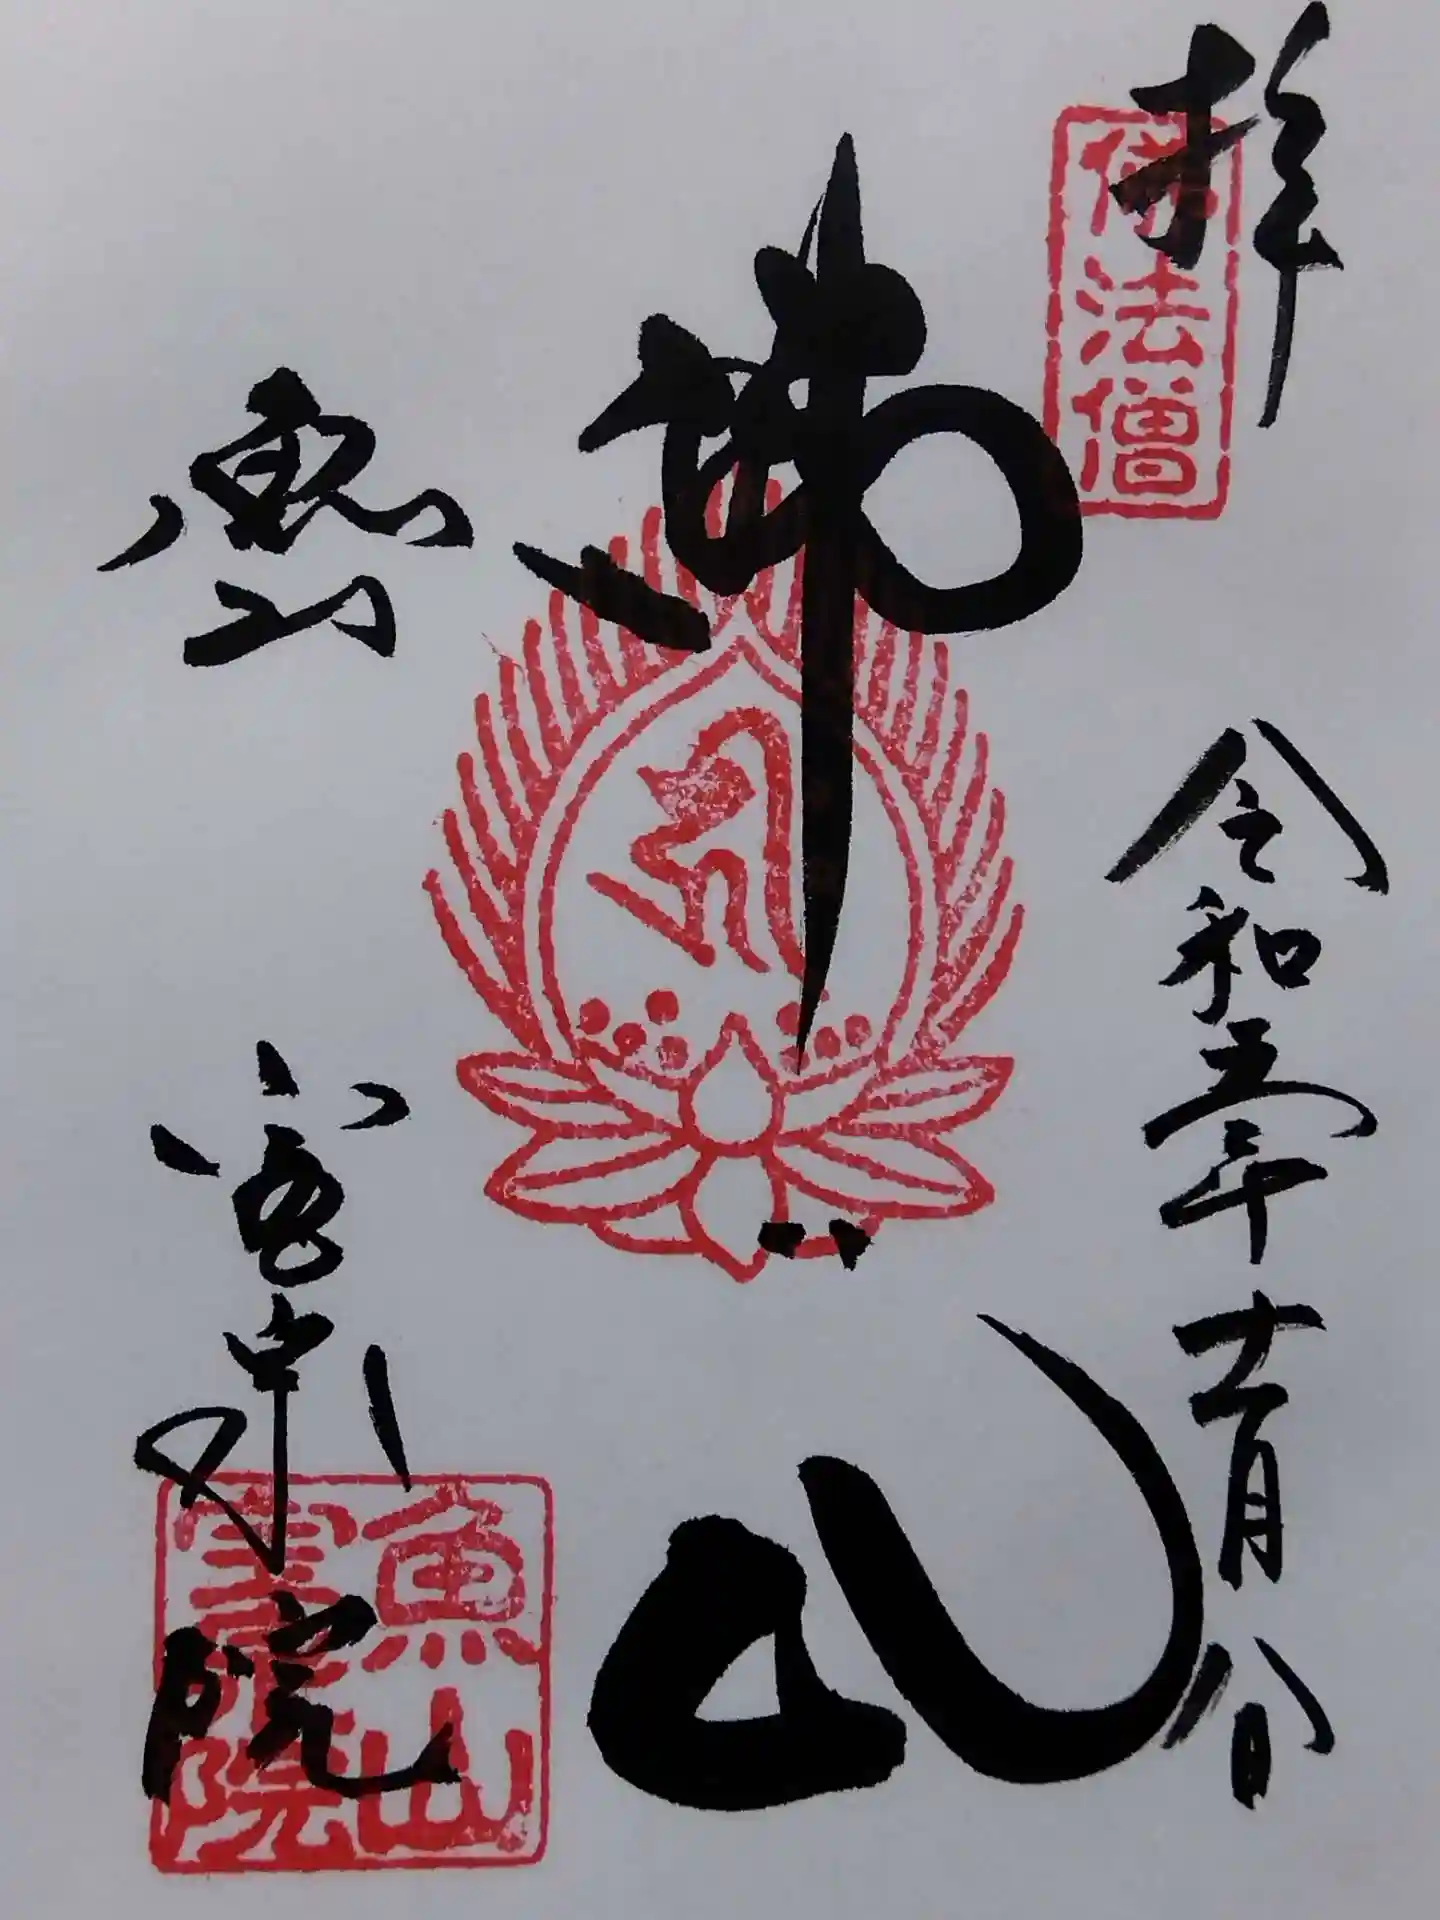 拝
佛法僧
令和五年十一月八日
佛心
魚山
宝泉院
魚山